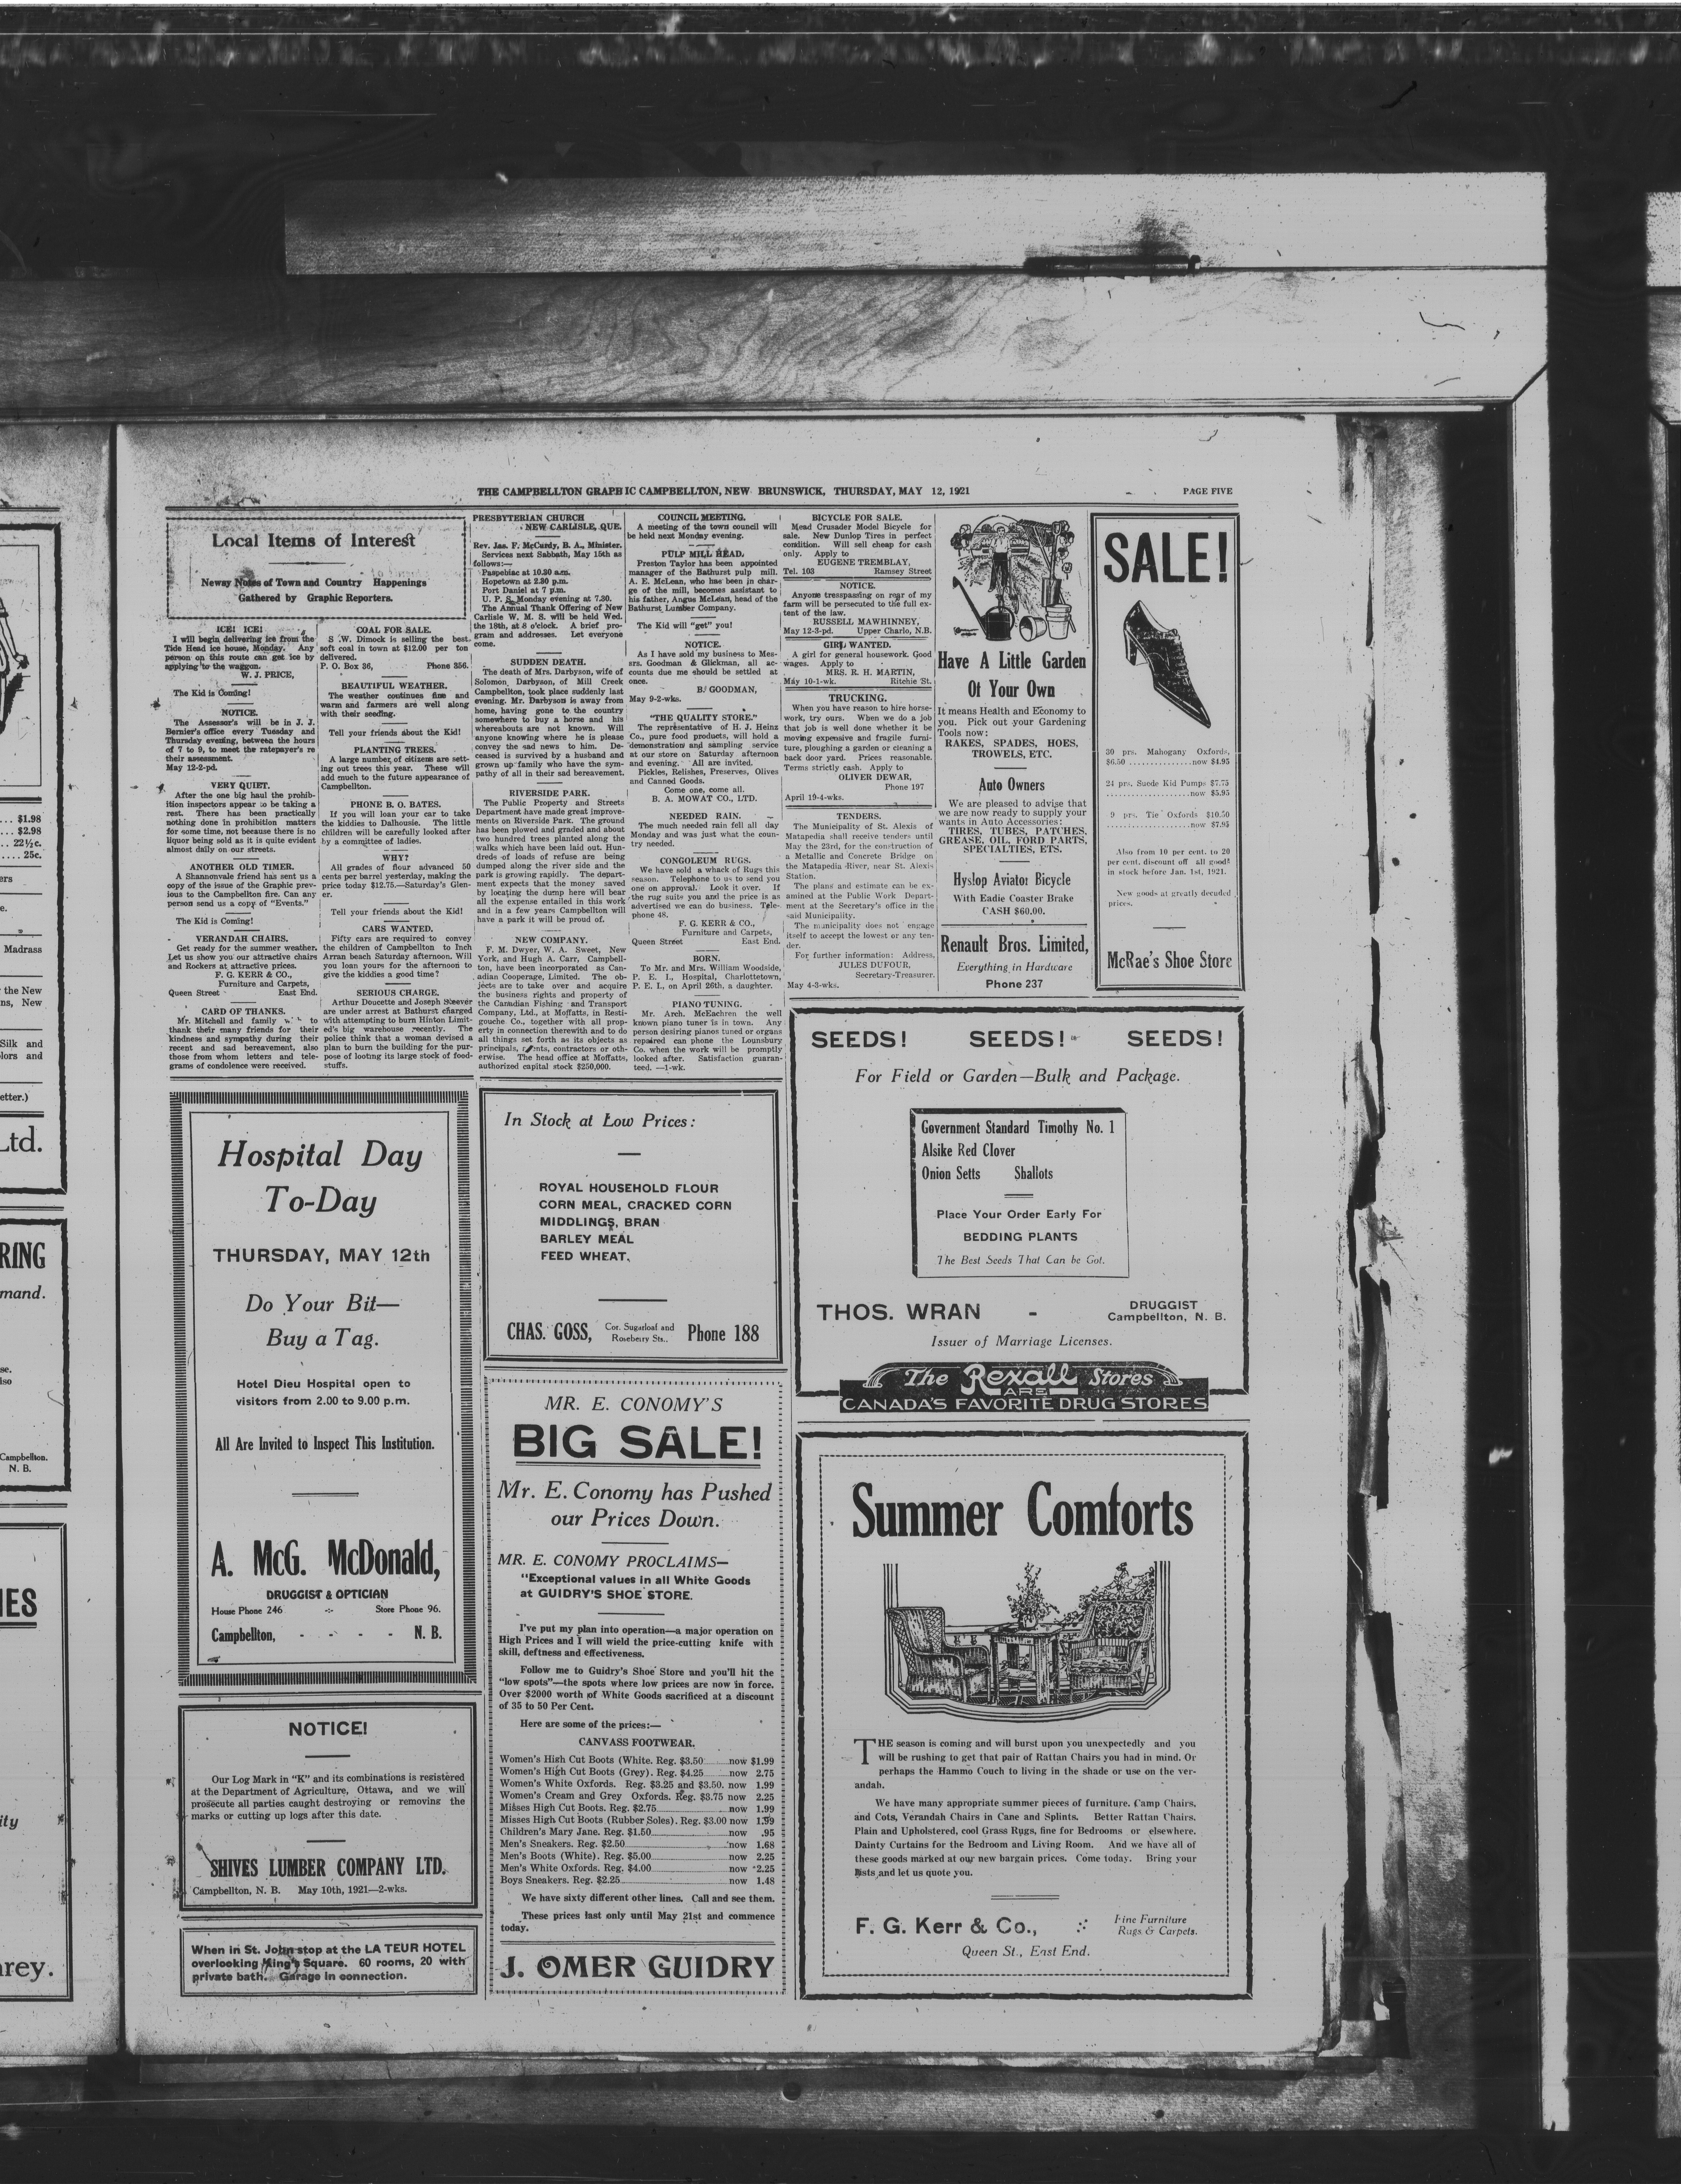 THE CAMPBELLTON GRAPHIC CAMPBELLTON, NEW BRUNSWICK, THURSDAY, MAY 12, 1921
PAGE FIVE
Local Items of Interest
Newsy Notes of Town and Country Happenings
Gathered by Graphic Reporters.
ICE! ICE!
I will begin delivering ice from the
Tide Head ice house, Monday. Any
person on this route can get ice by
applying to the waggon.
W. J. PRICE,
The Kid is Coming!
NOTICE.
The Assessor's will be in J. J.
Bernier's office every Tuesday and
Thursday evening, between the hours
of 7 to 9, to meet the ratepayer's re
their assessment.
May 12-2-pd.
VERY QUIET.
After the one big haul the prohib-
ition inspectors appear to be taking a
rest. There has been practically
nothing done in prohibition matters
for some time, not because there is no
liquor being sold as it is quite evident
almost daily on our streets.
ANOTHER OLD TIMER.
A Shannonvale friend has sent us a
copy of the issue of the Graphic prev-
ious to the Campbellton fire. Can any
person send us a copy of "Events."
The Kid is Coming!
VERANDAH CHAIRS.
Get ready for the summer weather.
Let us show you our attractive chairs
and Rockers at attractive prices.
F. G. KERR & CO.,
Furniture and Carpets,
Queen Street East End.
CARD OF THANKS.
Mr. Mitchell and family to
thank their many friends for their
kindness and sympathy during their
recent and sad bereavement, also
those from whom letters and tele-
grams of condolence were received.
COAL FOR SALE.
S. W. Dimock is selling the best
soft coal in town at $12.00 per ton
delivered.
P. O. Box 36, Phone 356.
BEAUTIFUL WEATHER.
The weather continues fine and
warm and farmers are well along
with their seeding.
Tell your friends about the Kid!
PLANTING TREES.
A large number of citizens are sett-
ing out trees this year. These will
add much to the future appearance of
Campbellton.
PHONE B. O. BATES.
If you will loan your car to take
the kiddies to Dalhousie. The little
children will be carefully looked after
by a committee of ladies.
WHY?
All grades of flour advanced 50
cents per barrel yesterday, making the
price today $12.75.—Saturday's Glen-
er.
Tell your friends about the Kid!
CARS WANTED.
Fifty cars are required to convey
the children of Campbellton to Inch
Arran beach Saturday afternoon. Will
you loan yours for the afternoon to
give the kiddies a good time?
SERIOUS CHARGE.
Arthur Doucette and Joseph Skeever
are under arrest at Bathurst charged
with attempting to burn Hinton Limit-
ed's big warehouse recently. The
police think that a woman devised a
plan to burn the building for the pur-
pose of looting its large stock of food-
stuffs.
PRESBYTERIAN CHURCH
NEW CARLISLE, QUE.
Rev. Jas. F. McCurdy, B. A., Minister.
Services next Sabbath, May 15th as
follows:—
Paspebiac at 10.30 a.m.
Hopetown at 2.30 p.m.
Port Daniel at 7 p.m.
U. P. S. Monday evening at 7.30.
The Annual Thank Offering of New
Carlisle W. M. S. will be held Wed.
the 18th, at 8 o'clock. A brief pro-
gram and addresses. Let everyone
come.
SUDDEN DEATH.
The death of Mrs. Darbyson, wife of
Solomon Darbyson, of Mill Creek
Campbellton, took place suddenly last
evening. Mr. Darbyson is away from
home, having gone to the country
somewhere to buy a horse and his
whereabouts are not known. Will
anyone knowing where he is please
convey the sad news to him. De-
ceased is survived by a husband and
grown up family who have the sym-
pathy of all in their sad bereavement.
RIVERSIDE PARK.
The Public Property and Streets
Department have made great improve-
ments on Riverside Park. The ground
has been plowed and graded and about
two hundred trees planted along the
walks which have been laid out. Hun-
dreds of loads of refuse are being
dumped along the river side and the
park is growing rapidly. The depart-
ment expects that the money saved
by locating the dump here will bear
all the expense entailed in this work
and in a few years Campbellton will
have a park it will be proud of.
NEW COMPANY.
F. M. Dwyer, W. A. Sweet, New
York, and Hugh A. Carr, Campbell-
ton, have been incorporated as Can-
adian Cooperage, Limited. The ob-
jects are to take over and acquire
the business rights and property of
the Canadian Fishing and Transport
Company, Ltd., at Moffatts, in Resti-
gouche Co., together with all prop-
erty in connection therewith and to do
all things set forth as its objects as
principals, agents, contractors or oth-
erwise. The head office at Moffatts,
authorized capital stock $250,000.
COUNCIL MEETING.
A meeting of the town council will
be held next Monday evening.
PULP MILL HEAD.
Preston Taylor has been appointed
manager of the Bathurst pulp mill.
A. E. McLean, who has been in char-
ge of the mill, becomes assistant to
his father, Angus McLean, head of the
Bathurst Lumber Company.
The Kid will "get" you!
NOTICE.
As I have sold my business to Mes-
srs. Goodman & Glickman, all ac-
counts due me should be settled at
once.
B. GOODMAN,
May 9-2-wks.
"THE QUALITY STORE."
The representative of H. J. Heinz
Co., pure food products, will hold a
demonstration and sampling service
at our store on Saturday afternoon
and evening. All are invited.
Pickles, Relishes, Preserves, Olives
and Canned Goods.
Come one, come all.
B. A. MOWAT CO., LTD.
NEEDED RAIN.
The much needed rain fell all day
Monday and was just what the coun-
try needed.
CONGOLEUM RUGS.
We have sold a whack of Rugs this
season. Telephone to us to send you
one on approval. Look it over. If
the rug suite you and the price is as
advertised we can do business. Tele-
phone 48.
F. G. KERR & CO.,
Furniture and Carpets,
Queen Street East End.
BORN.
To Mr. and Mrs. William Woodside,
P. E. I., Hospital, Charlottetown,
P. E. I., on April 26th, a daughter.
PIANO TUNING.
Mr. Arch. McEachren the well
known piano tuner is in town. Any
person desiring pianos tuned or organs
repaired can phone the Lounsbury
Co. when the work will be promptly
looked after. Satisfaction guaran-
teed. —1-wk.
BICYCLE FOR SALE.
Mead Crusader Model Bicycle for
sale. New Dunlop Tires in perfect
condition. Will sell cheap for cash
only. Apply to
EUGENE TREMBLAY,
Tel. 103 Ramsey Street
NOTICE.
Anyone tresspassing on rear of my
farm will be persecuted to the full ex-
tent of the law.
RUSSELL MAWHINNEY,
May 12-3-pd. Upper Charlo, N.B.
GIRL WANTED.
A girl for general housework. Good
wages. Apply to
MRS. R. H. MARTIN,
May 10-1-wk. Ritchie St.
TRUCKING.
When you have reason to hire horse-
work, try ours. When we do a job
that job is well done whether it be
moving expensive and fragile furni-
ture, ploughing a garden or cleaning a
back door yard. Prices reasonable.
Terms strictly cash. Apply to
OLIVER DEWAR,
Phone 197
April 19-4-wks.
TENDERS.
The Municipality of St. Alexis of
Matapedia shall receive tenders until
May the 23rd, for the construction of
a Metallic and Concrete Bridge on
the Matapedia River, near St. Alexis
Station.
The plans and estimate can be ex-
amined at the Public Work Depart-
ment at the Secretary's office in the
said Municipality.
The municipality does not engage
itself to accept the lowest or any ten-
der.
For further information: Address,
JULES DUFOUR,
Secretary-Treasurer.
May 4-3-wks.
Have A Little Garden
Of Your Own
It means Health and Economy to
you. Pick out your Gardening
Tools now:
RAKES, SPADES, HOES,
TROWELS, ETC.
Auto Owners
We are pleased to advise that
we are now ready to supply your
wants in Auto Accessories:
TIRES, TUBES, PATCHES,
GREASE, OIL, FORD PARTS,
SPECIALTIES, ETS.
Hyslop Aviator Bicycle
With Eadie Coaster Brake
CASH $60.00.
Renault Bros. Limited,
Everything in Hardware
Phone 237
SALE!
30 prs. Mahogany Oxfords,
$6.50 ............... now $4.95
24 prs. Suede Kid Pumps $7.75
..................... now $5.95
9 prs. Tie Oxfords $10.50
..................... now $7.95
Also from 10 per cent. to 20
per cent. discount off all goods
in stock before Jan. 1st, 1921.
New goods at greatly decuded
prices.
McRae's Shoe Store
SEEDS! SEEDS! SEEDS!
For Field or Garden—Bulk and Package.
Government Standard Timothy No. 1
Alsike Red Clover
Onion Setts Shallots
Place Your Order Early For
BEDDING PLANTS
The Best Seeds That Can be Got.
THOS. WRAN - DRUGGIST
Campbellton, N. B.
Issuer of Marriage Licenses.
The Rexall Stores
ARE
CANADA'S FAVORITE DRUG STORES
Hospital Day
To-Day
THURSDAY, MAY 12th
Do Your Bit—
Buy a Tag.
Hotel Dieu Hospital open to
visitors from 2.00 to 9.00 p.m.
All Are Invited to Inspect This Institution.
A. McG. McDonald,
DRUGGIST & OPTICIAN
House Phone 246 -:- Store Phone 96.
Campbellton, - - - - N. B.
In Stock at Low Prices:
ROYAL HOUSEHOLD FLOUR
CORN MEAL, CRACKED CORN
MIDDLINGS, BRAN
BARLEY MEAL
FEED WHEAT.
CHAS. GOSS, Cor. Sugarloaf and
Roseberry Sts., Phone 188
MR. E. CONOMY'S
BIG SALE!
Mr. E. Conomy has Pushed
our Prices Down.
MR. E. CONOMY PROCLAIMS—
"Exceptional values in all White Goods
at GUIDRY'S SHOE STORE.
I've put my plan into operation—a major operation on
High Prices and I will wield the price-cutting knife with
skill, deftness and effectiveness.
Follow me to Guidry's Shoe Store and you'll hit the
"low spots"—the spots where low prices are now in force.
Over $2000 worth of White Goods sacrificed at a discount
of 35 to 50 Per Cent.
Here are some of the prices:—
CANVASS FOOTWEAR.
Women's High Cut Boots (White. Reg. $3.50 now $1.99
Women's High Cut Boots (Grey). Reg. $4.25 now 2.75
Women's White Oxfords. Reg. $3.25 and $3.50. now 1.99
Women's Cream and Grey Oxfords. Reg. $3.75 now 2.25
Misses High Cut Boots. Reg. $2.75 now 1.99
Misses High Cut Boots (Rubber Soles). Reg. $3.00 now 1.99
Children's Mary Jane. Reg. $1.50 now .95
Men's Sneakers. Reg. $2.50 now 1.68
Men's Boots (White). Reg. $5.00 now 2.25
Men's White Oxfords. Reg. $4.00 now 2.25
Boys Sneakers. Reg. $2.25 now 1.48
We have sixty different other lines. Call and see them.
These prices last only until May 21st and commence
today.
J. OMER GUIDRY
NOTICE!
Our Log Mark in "K" and its combinations is registered
at the Department of Agriculture, Ottawa, and we will
prosecute all parties caught destroying or removing the
marks or cutting up logs after this date.
SHIVES LUMBER COMPANY LTD.
Campbellton, N. B. May 10th, 1921—2-wks.
When in St. John stop at the LA TEUR HOTEL
overlooking King's Square. 60 rooms, 20 with
private bath. Garage in connection.
Summer Comforts
THE season is coming and will burst upon you unexpectedly and you
will be rushing to get that pair of Rattan Chairs you had in mind. Or
perhaps the Hammo Couch to living in the shade or use on the ver-
andah.
We have many appropriate summer pieces of furniture. Camp Chairs,
and Cots, Verandah Chairs in Cane and Splints. Better Rattan Chairs.
Plain and Upholstered, cool Grass Rugs, fine for Bedrooms or elsewhere.
Dainty Curtains for the Bedroom and Living Room. And we have all of
these goods marked at our new bargain prices. Come today. Bring your
lists and let us quote you.
F. G. Kerr & Co., Fine Furniture
Rugs & Carpets.
Queen St., East End.
$1.98
$2.98
22½c.
25c.
Madrass
the New
ns, New
Silk and
lors and
etter.)
Ltd.
RING
mand.
Campbellton.
N. B.
IES
ity
rey.